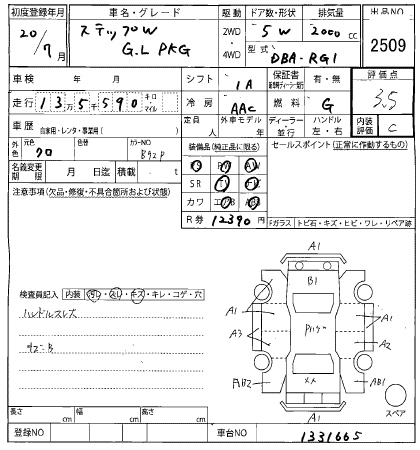 初度登録年月 車名・グレード 駆動 ドア数・形状 排気量 出品NO
20/7月 ステップワゴン 2WD 5W 2000 cc 2509
G.L PKG 4WD 型式 DBA-RG1
車検 年 月 シフト IA 保証書 有・無 評価点
走行 13万5千590 キロ・マイル 冷房 AAC 燃料 G 3.5
車歴 自家用・レンタ・事業用( ) 定員 人 外車モデル 年 ディーラー 並行 ハンドル 左・右 内装評価 C
外色 元色 クロ 色替 カラーNO B92P 装備品(純正品に限る) セールスポイント(正常に作動するもの)
名義変更期限 月 日迄 積載 t PS PW AW
注意事項(欠品・修復・不具合箇所および状態) SR TV
カワ エアB
R券 12390円 Fガラス トビ石・キズ・ヒビ・ワレ・リペア跡
A1
B1
検査員記入 内装 ヨゴレ・スレ・キズ・キレ・コゲ・穴
ハンドルスレ大
A1 A1
A3 A2
AB1
A1
スペア
長さ cm 幅 cm 高さ cm
登録NO 車台NO 1331665